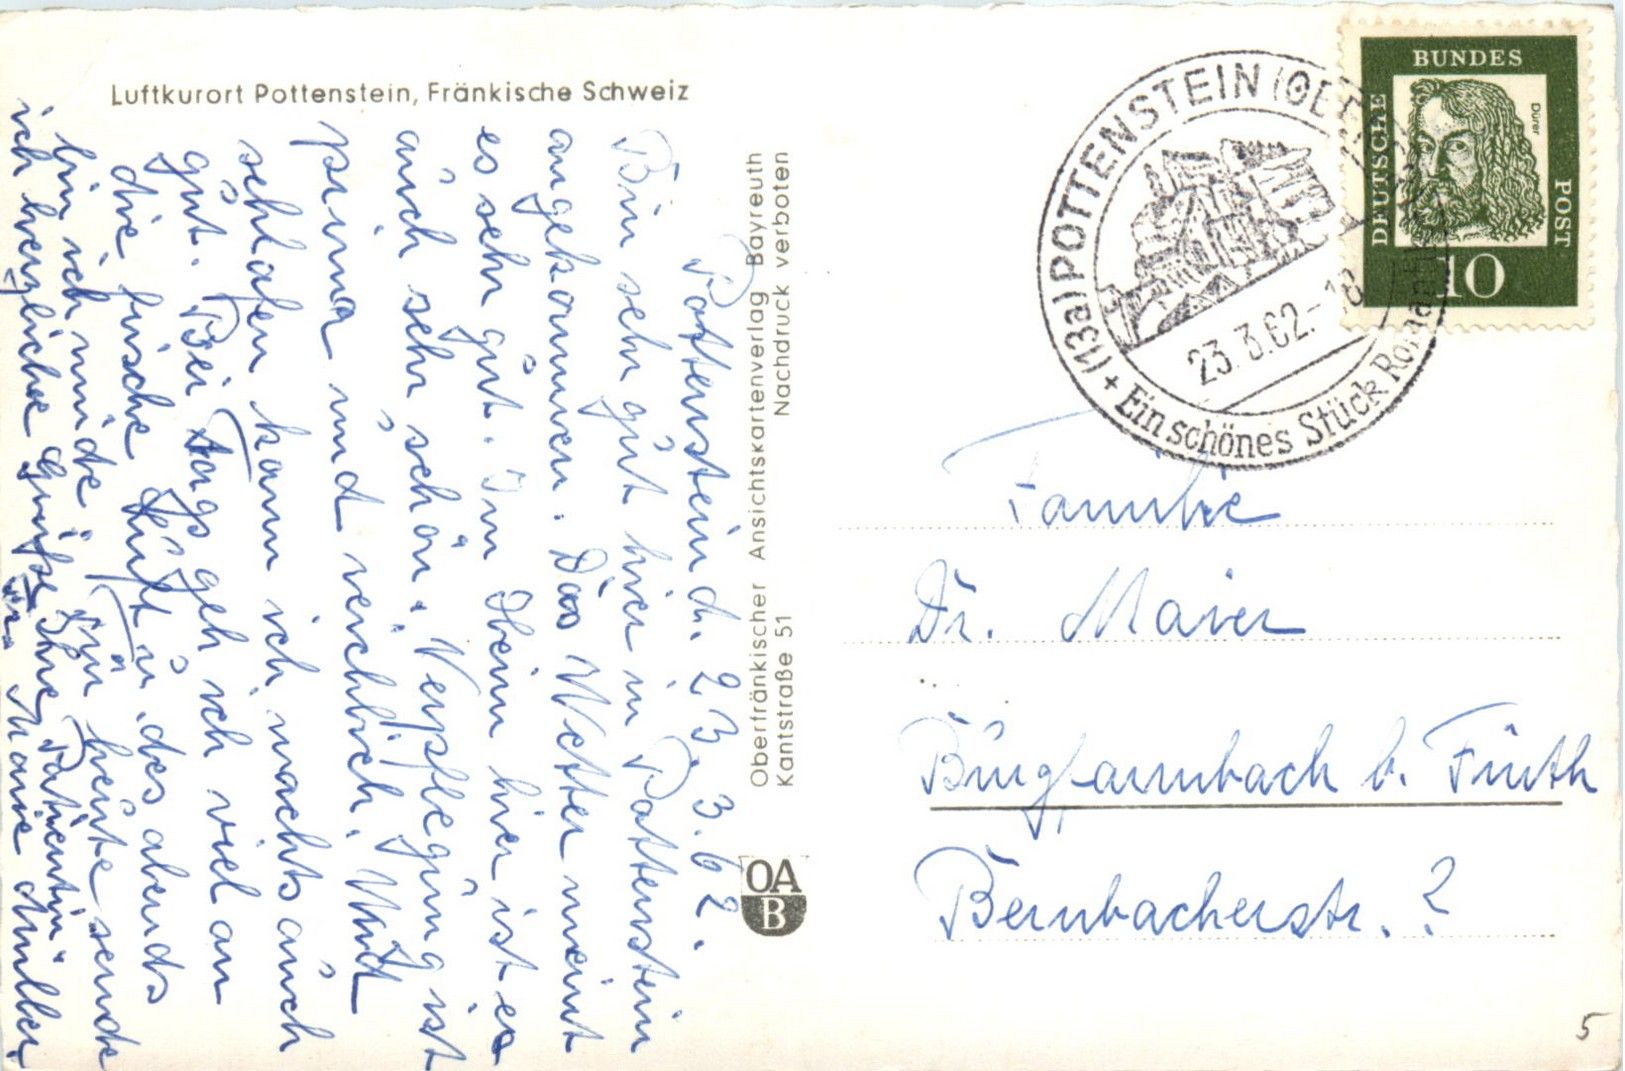 Luftkurort Pottenstein, Fränkische Schweiz
Pottenstein d. 23. 3. 62.
Bin sehr gut hier in Pottenstein
angekommen. Das Wetter meint
es sehr gut. Im Heim hier ist es
auch sehr schön. Verpflegung ist
prima und reichlich. Und
schlafen kann ich nachts auch
gut. Bei Tags geh ich viel an
die frische Luft u. des abends
bin ich müde. Für heute sende
ich herzliche Grüße Ihre Patientin
Marie Müller
Oberfränkischer Ansichtskartenverlag Bayreuth
Kantstraße 51 Nachdruck verboten
OA
B
(13a) POTTENSTEIN (OBERFR
+ Ein schönes Stück Romantik
23.3.62.-18
BUNDES
DEUTSCHE
POST
Dürer
10
Familie
Dr. Maier
Burgfarrnbach b. Fürth
Bernbacherstr. 2
5